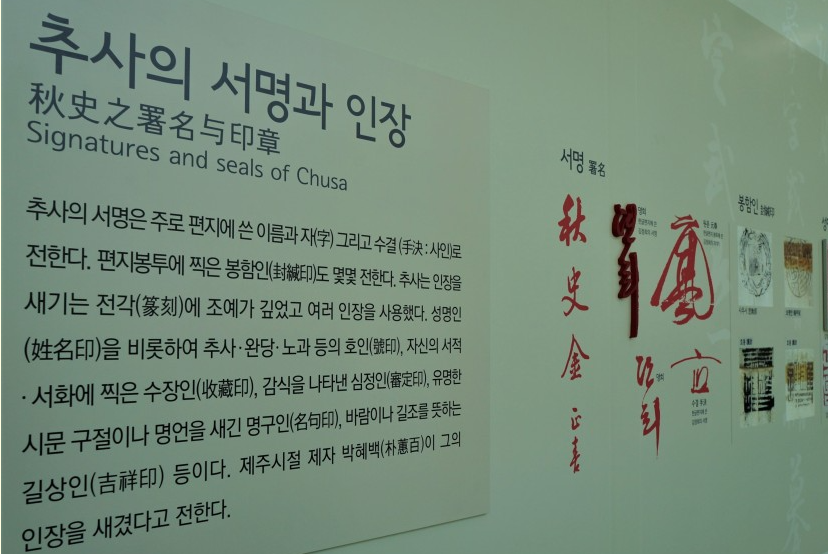 추사의 서명과 인장
秋史之署名与印章
Signatures and seals of Chusa
추사의 서명은 주로 편지에 쓴 이름과 자(字) 그리고 수결(手決 : 사인)로
전한다. 편지봉투에 찍은 봉함인(封緘印)도 몇몇 전한다. 추사는 인장을
새기는 전각(篆刻)에 조예가 깊었고 여러 인장을 사용했다. 성명인
(姓名印)을 비롯하여 추사·완당·노과 등의 호인(號印), 자신의 서적
·서화에 찍은 수장인(收藏印), 감식을 나타낸 심정인(審定印), 유명한
시문 구절이나 명언을 새긴 명구인(名句印), 바람이나 길조를 뜻하는
길상인(吉祥印) 등이다. 제주시절 제자 박혜백(朴蕙百)이 그의
인장을 새겼다고 전한다.
서명 署名
秋史金正喜
봉함인 封緘印